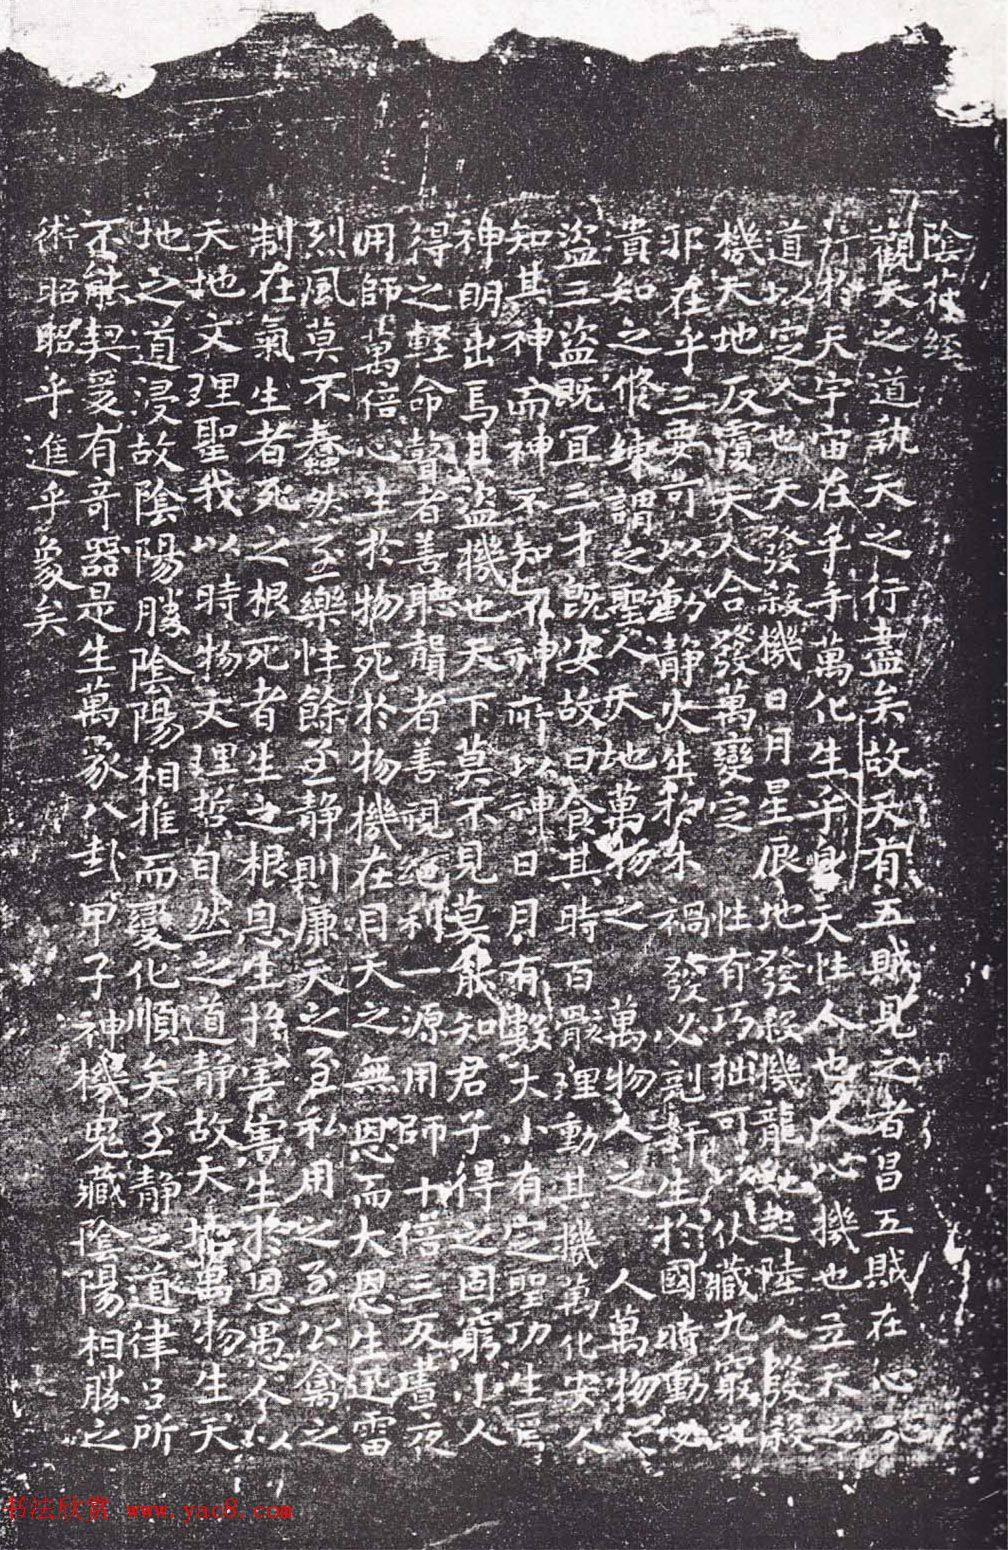 陰符經
觀天之道執天之行盡矣故天有五賊見之者昌五賊在心施
行於天宇宙在乎手萬化生乎身天性人也人心機也立天之
道以定人也天發殺機日月星辰地發殺機龍蛇起陸人發殺
機天地反覆天人合發萬變定性有巧拙可以伏藏九竅之
邪在乎三要可以動靜火生於木禍發必剋奸生於國時動必
潰知之修煉謂之聖人天地萬物之 萬物人之 人萬物之
盜三盜既宜三才既安故曰食其時百骸理動其機萬化安人
知其神而神不知不神所以神日月有數大小有定聖功生焉
神明出焉其盜機也天下莫不見莫能知君子得之固窮小人
得之輕命瞽者善聽聾者善視絕利一源用師十倍三反晝夜
用師萬倍心生於物死於物機在目天之無恩而大恩生迅雷
烈風莫不蠢然至樂性餘至靜則廉天之至私用之至公禽之
制在氣生者死之根死者生之根恩生於害害生於恩愚人以
天地文理聖我以時物文理哲自然之道靜故天地萬物生天
地之道浸故陰陽勝陰陽相推而變化順矣至靜之道律呂所
不能契爰有奇器是生萬象八卦甲子神機鬼藏陰陽相勝之
術昭昭乎進乎象矣
书法欣赏 www.yac8.com